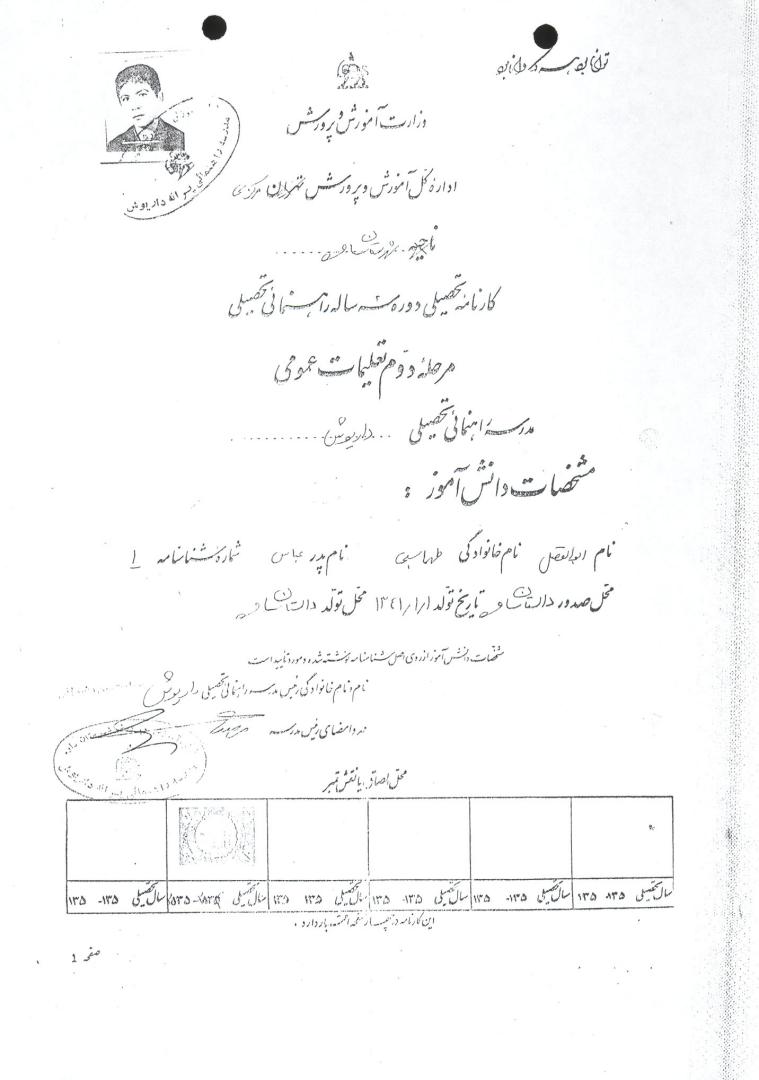 توانا بود هر که دانا بود
وزارت آموزش و پرورش
مدرسه راهنمائی پسرانه داریوش
اداره کل آموزش و پرورش تهران مرکزی
ناحیه شهرستان ساوه
کارنامه تحصیلی دوره سه ساله راهنمائی تحصیلی
مرحله دوم تعلیمات عمومی
مدرسه راهنمائی تحصیلی داریوش
مشخصات دانش آموز :
نام ابوالفضل نام خانوادگی طهماسبی نام پدر عباس شماره شناسنامه ۱
محل صدور ساوه تاریخ تولد ۱۳۴۱/۱/۱ محل تولد ساوه
مشخصات دانش آموز از روی اصل شناسنامه نوشته شده و مورد تأیید است
نام و نام خانوادگی رئیس مدرسه راهنمائی تحصیلی داریوش
مهر و امضای رئیس مدرسه
محل الصاق یا نقش تمبر
سال تحصیلی ۱۳۵ -۱۳۵ سال تحصیلی ۱۳۵ -۱۳۵ سال تحصیلی ۱۳۵ -۱۳۵ سال تحصیلی ۱۳۵ ۱۳۵ سال تحصیلی سال تحصیلی ۱۳۵ -۱۳۵
این کارنامه در چهار صفحه اعتبار دارد .
صفحه ۱